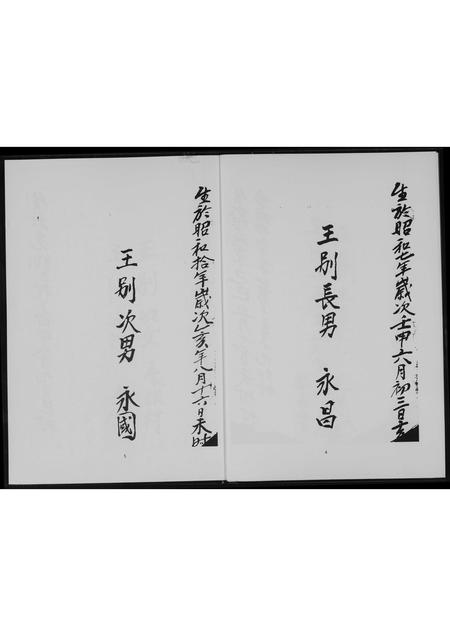 生於昭和七年歲次壬申六月初三日亥
王别長男 永昌
4
生於昭和拾年歲次乙亥年八月十六日未時
王别次男 永國
5